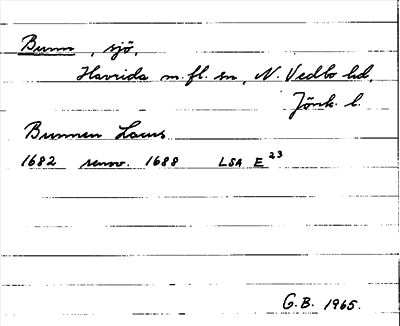 Bunn, sjö,
Haurida m. fl. sn, N. Vedbo hd,
Jönk. l.
Bunnen Lacus
1682 renov. 1688 LSA E 23
G.B. 1965.